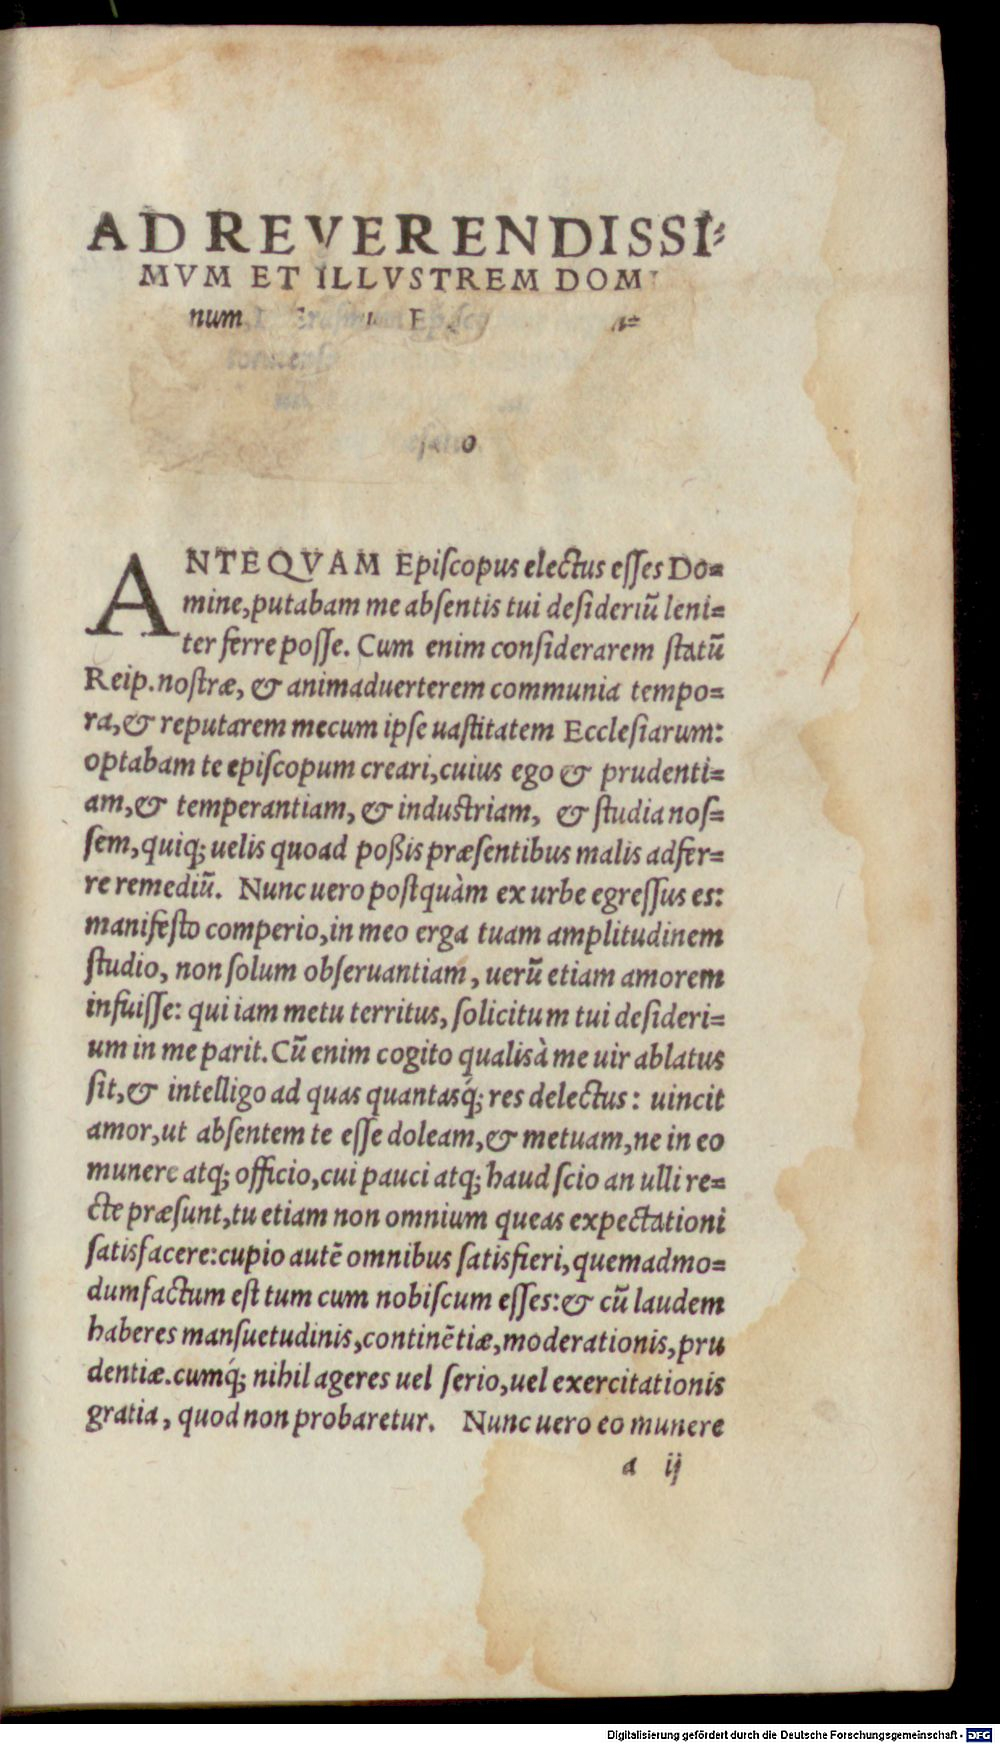 AD REVERENDISSI⸗
MVM ET ILLVSTREM DOM
num
ANTEQVAM Epiſcopus electus eſſes Do⸗
mine, putabam me abſentis tui deſideriū leni⸗
ter ferre poſſe. Cum enim conſiderarem ſtatū
Reip. noſtræ, & animaduerterem communia tempo⸗
ra, & reputarem mecum ipſe uaſtitatem Eccleſiarum:
optabam te epiſcopum creari, cuius ego & prudenti⸗
am, & temperantiam, & induſtriam, & ſtudia noſ⸗
ſem, quiq; uelis quoad poßis præſentibus malis adfer⸗
re remediū. Nunc uero poſtquàm ex urbe egreſſus es:
manifeſto comperio, in meo erga tuam amplitudinem
ſtudio, non ſolum obſeruantiam, uerū etiam amorem
infuiſſe: qui iam metu territus, ſolicitum tui deſideri⸗
um in me parit. Cū enim cogito qualis à me uir ablatus
ſit, & intelligo ad quas quantasq́; res delectus: uincit
amor, ut abſentem te eſſe doleam, & metuam, ne in eo
munere atq; officio, cui pauci atq; haud ſcio an ulli re⸗
cte præſunt, tu etiam non omnium queas expectationi
ſatisfacere: cupio autē omnibus ſatisfieri, quemadmo⸗
dum factum eſt tum cum nobiſcum eſſes: & cū laudem
haberes manſuetudinis, continētiæ, moderationis, pru
dentiæ. cumq́; nihil ageres uel ſerio, uel exercitationis
gratia, quod non probaretur. Nunc uero eo munere
a ij
Digitalisierung gefördert durch die Deutsche Forschungsgemeinschaft - DFG